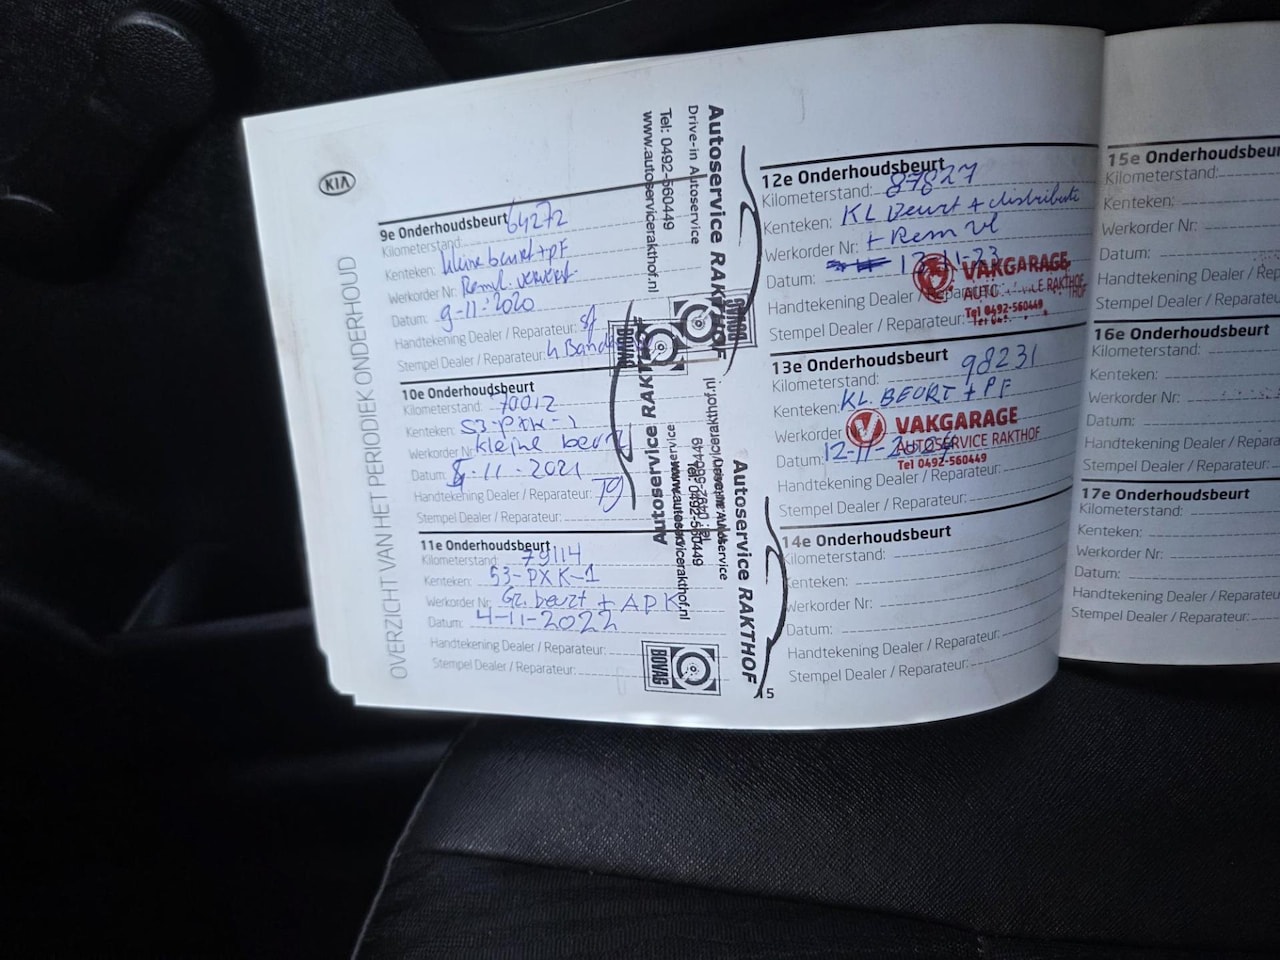 KIA
OVERZICHT VAN HET PERIODIEK ONDERHOUD
9e Onderhoudsbeurt
Kilometerstand: 64272
Kenteken: kleine beurt + PF
Werkorder Nr: Remvl. ververst
Datum: 9-11-2020
Handtekening Dealer / Reparateur:
Stempel Dealer / Reparateur: 4 Banden
10e Onderhoudsbeurt
Kilometerstand: 70012
Kenteken: 53-PXK-1
Werkorder Nr: kleine beurt
Datum: 8-11-2021
Handtekening Dealer / Reparateur:
Stempel Dealer / Reparateur:
11e Onderhoudsbeurt
Kilometerstand: 79114
Kenteken: 53-PXK-1
Werkorder Nr: Gr. beurt + APK
Datum: 4-11-2022
Handtekening Dealer / Reparateur:
Stempel Dealer / Reparateur:
Autoservice RAKTHOF
Drive-in Autoservice
Tel: 0492-560449
www.autoservicerakthof.nl
BOVAG
BOVAG
Autoservice RAKTHOF
Autoservice RAKTHOF
0492-560449
www.autoservicerakthof.nl
BOVAG
5
12e Onderhoudsbeurt
Kilometerstand: 87827
Kenteken: KL Beurt + distributie
Werkorder Nr: + Rem vl
Datum: 13-11-23
Handtekening Dealer / Reparateur:
Stempel Dealer / Reparateur:
VAKGARAGE
AUTOSERVICE RAKTHOF
Tel 0492-560449
13e Onderhoudsbeurt
Kilometerstand: 98231
Kenteken: KL. BEURT + PF
Werkorder
Datum: 12-11-2024
Handtekening Dealer / Reparateur:
Stempel Dealer / Reparateur:
VAKGARAGE
AUTOSERVICE RAKTHOF
Tel 0492-560449
14e Onderhoudsbeurt
Kilometerstand:
Kenteken:
Werkorder Nr:
Datum:
Handtekening Dealer / Reparateur:
Stempel Dealer / Reparateur:
15e Onderhoudsbeur
Kilometerstand:
Kenteken:
Werkorder Nr:
Datum:
Handtekening Dealer / Rep
Stempel Dealer / Reparateur:
16e Onderhoudsbeurt
Kilometerstand:
Kenteken:
Werkorder Nr:
Datum:
Handtekening Dealer / Repara
Stempel Dealer / Reparateur:
17e Onderhoudsbeurt
Kilometerstand:
Kenteken:
Werkorder Nr:
Datum:
Handtekening Dealer / Reparate
Stempel Dealer / Reparateur: